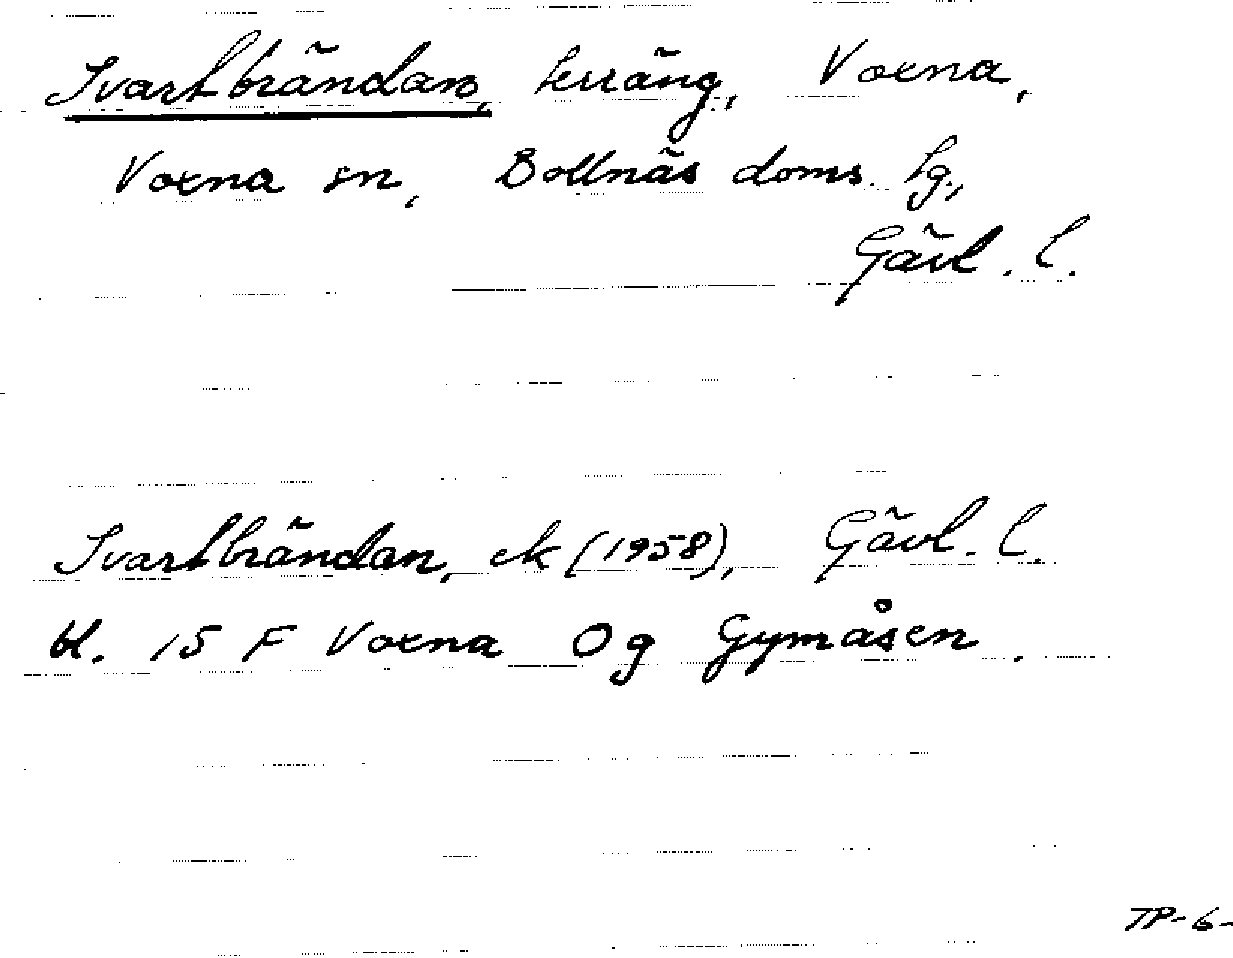 Svartbrändan, terräng, Voxna,
Voxna sn, Bollnäs doms. lg.,
Gävl. l.
Svartbrändan, ek (1958), Gävl. l.
bl. 15 F Voxna Og Gymåsen.
TP-6-